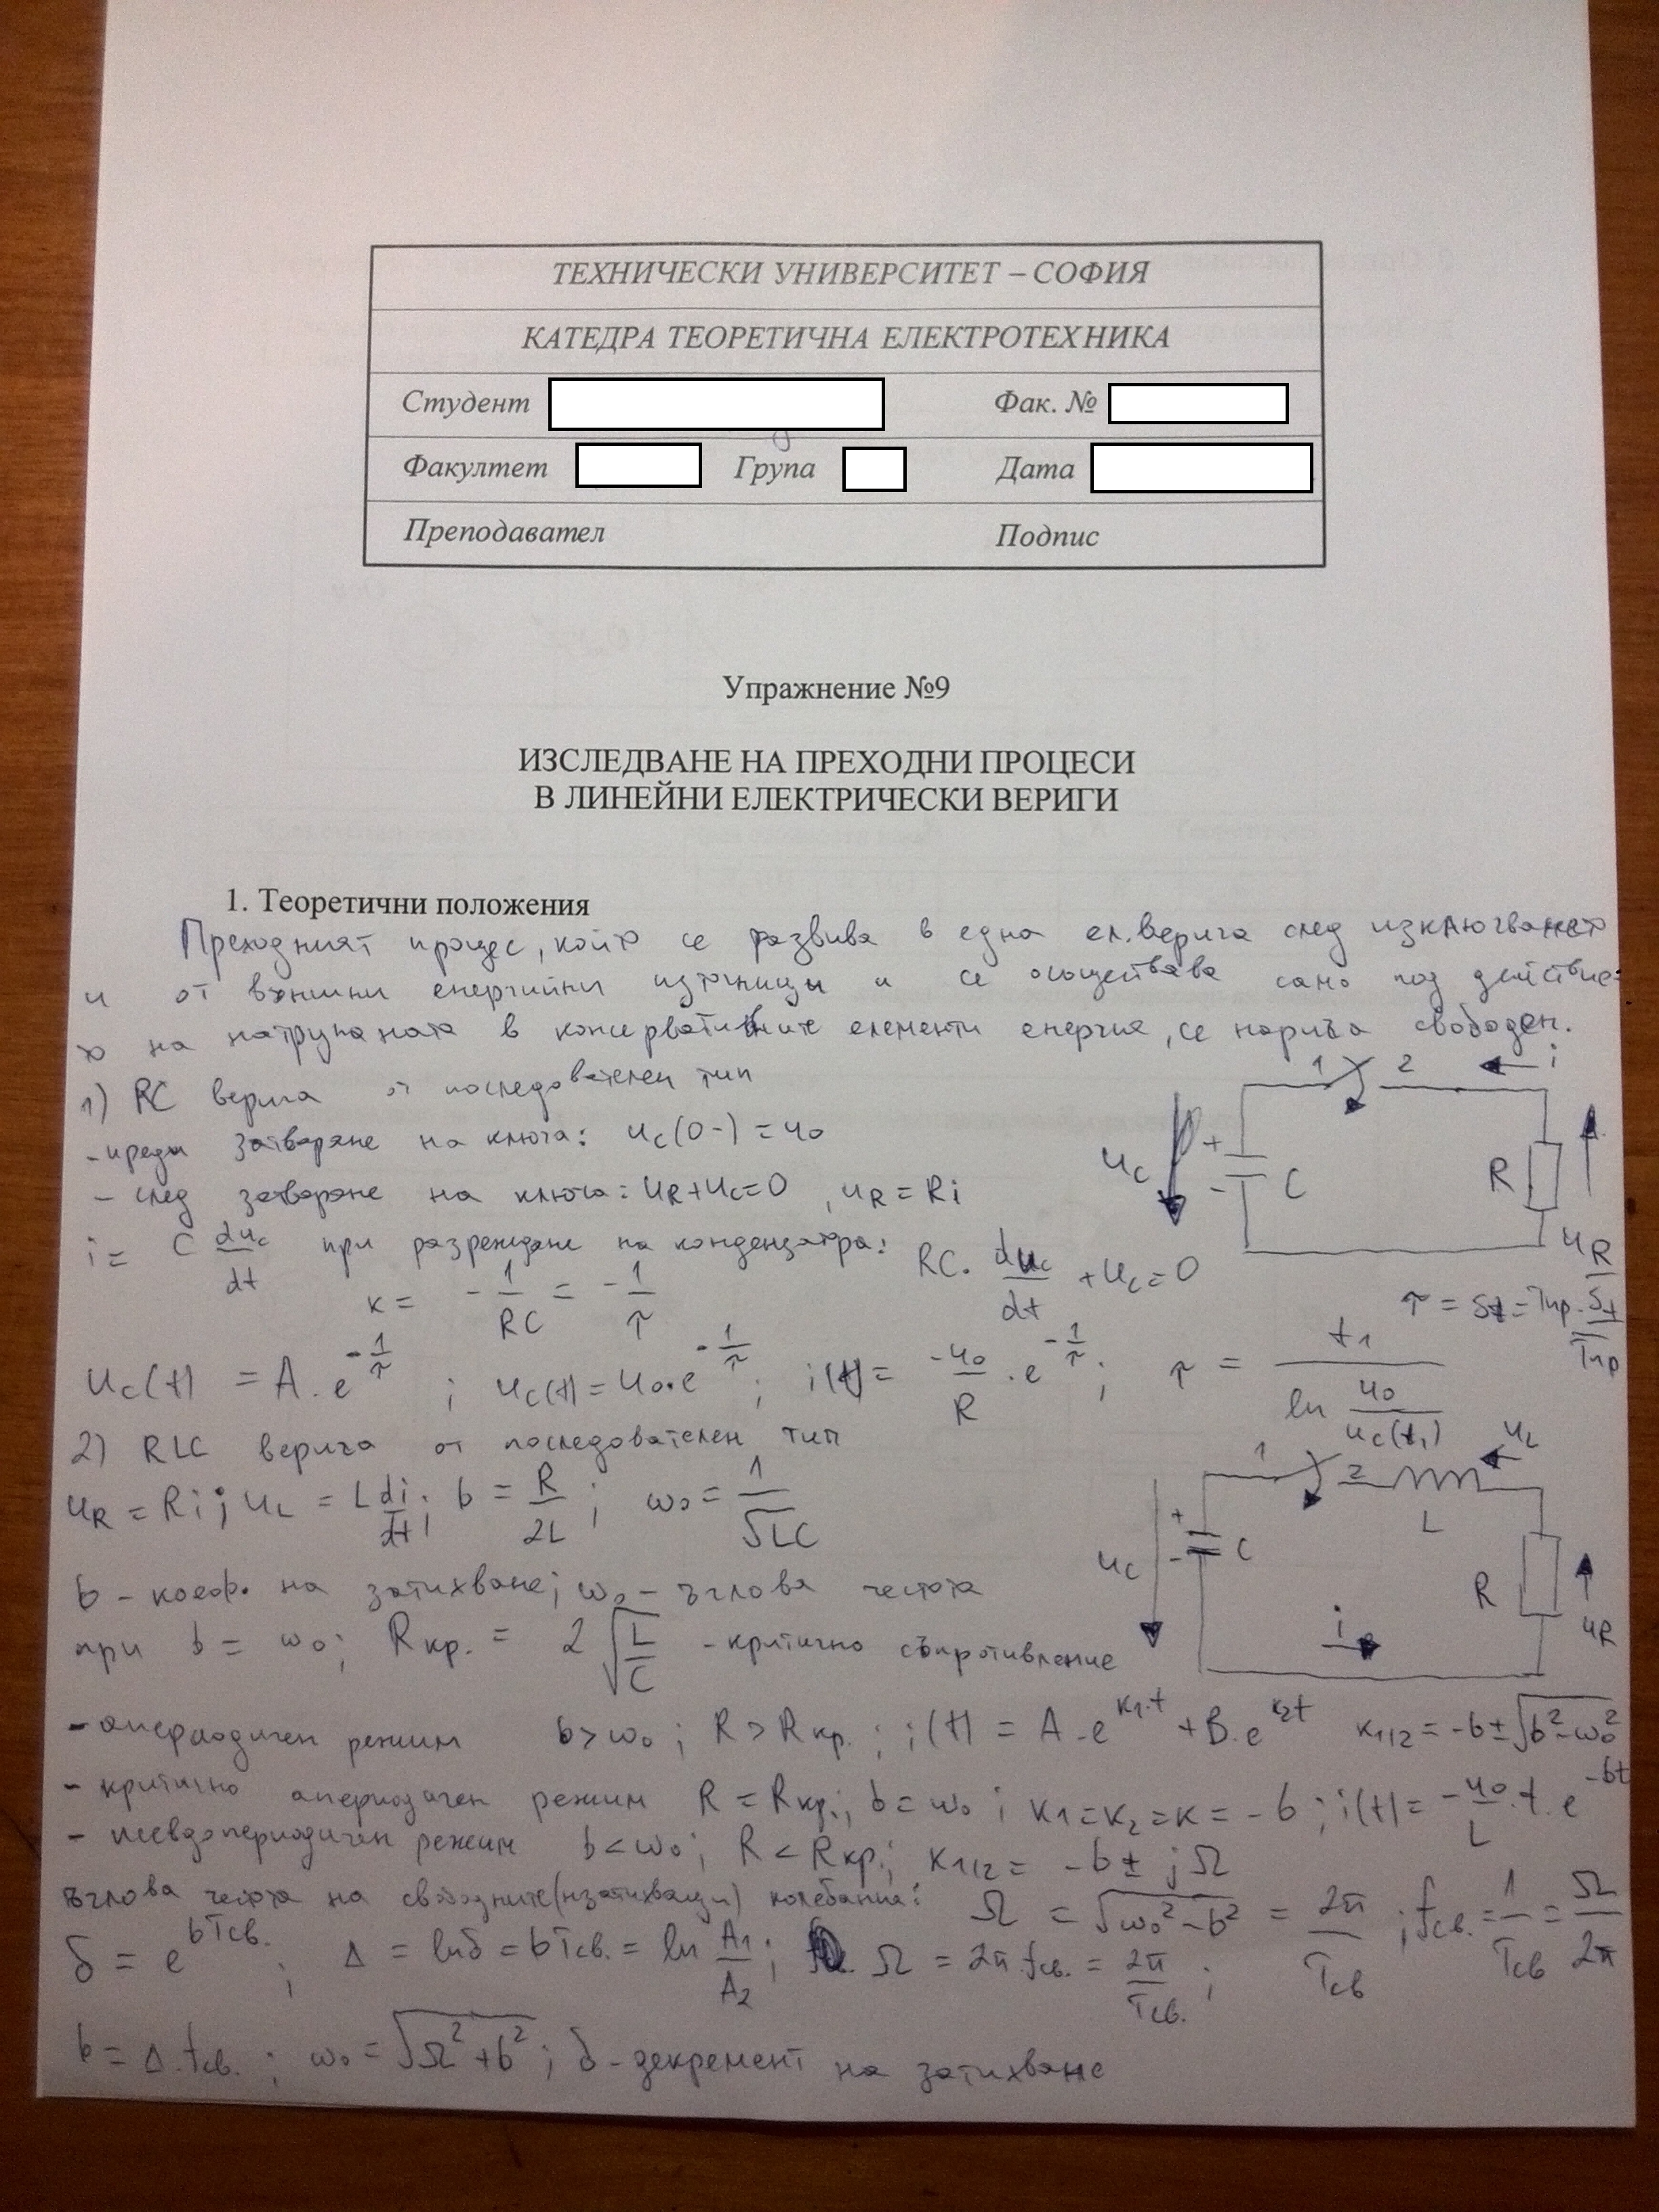 ТЕХНИЧЕСКИ УНИВЕРСИТЕТ – СОФИЯ
КАТЕДРА ТЕОРЕТИЧНА ЕЛЕКТРОТЕХНИКА
Студент Фак. №
Факултет Група Дата
Преподавател Подпис
Упражнение №9
ИЗСЛЕДВАНЕ НА ПРЕХОДНИ ПРОЦЕСИ
В ЛИНЕЙНИ ЕЛЕКТРИЧЕСКИ ВЕРИГИ
1. Теоретични положения
Преходният процес, който се развива в една ел. верига след изключването
и от външни енергийни източници и се осъществява само под действие-
то на натрупаната в консервативните елементи енергия, се нарича свободен.
1) RC верига от последователен тип
- преди затваряне на ключа: uc(0-) = u0
- след затваряне на ключа: uR+uc=0, uR = Ri
i = C duc/dt при разреждане на кондензатора: RC. duc/dt + uc = 0
к = - 1/RC = - 1/τ
uc(t) = A.e^(-1/τ) ; uc(t) = u0.e^(-1/τ) ; i(t) = -u0/R .e^(-1/τ) ; τ = t1 / ln u0/uc(t1)
1 2 i
uc + - C R uR
2) RLC верига от последователен тип
uR = Ri ; uL = L di/dt ; b = R/2L ; ω0 = 1/√LC
b - коеф. на затихване; ω0 - ъглова честота
при b = ω0; Rкр. = 2 √L/C - критично съпротивление
1 2 L uL
uc + - C R uR i
- апериодичен режим b > ω0 ; R > Rкр. ; i(t) = A.e^(к1.t) + B.e^(к2t) к1/2 = -b±√b²-ω0²
- критично апериодичен режим R = Rкр.; b = ω0 ; к1=к2=к= -b ; i(t) = -u0/L .t.e^(-bt)
- псевдопериодичен режим b < ω0; R < Rкр.; к1/2 = -b ± jΩ
ъглова честота на свободните(незатихващи) колебания: Ω = √ω0²-b² = 2π/Tсв ; fсв. = 1/Tсв = Ω/2π
δ = e^(bTсв.) ; Δ = lnδ = bTсв. = ln A1/A2 ; Ω = 2π fсв. = 2π/Tсв. ;
b = Δ.fсв. ; ω0 = √Ω²+b² ; δ - декремент на затихване